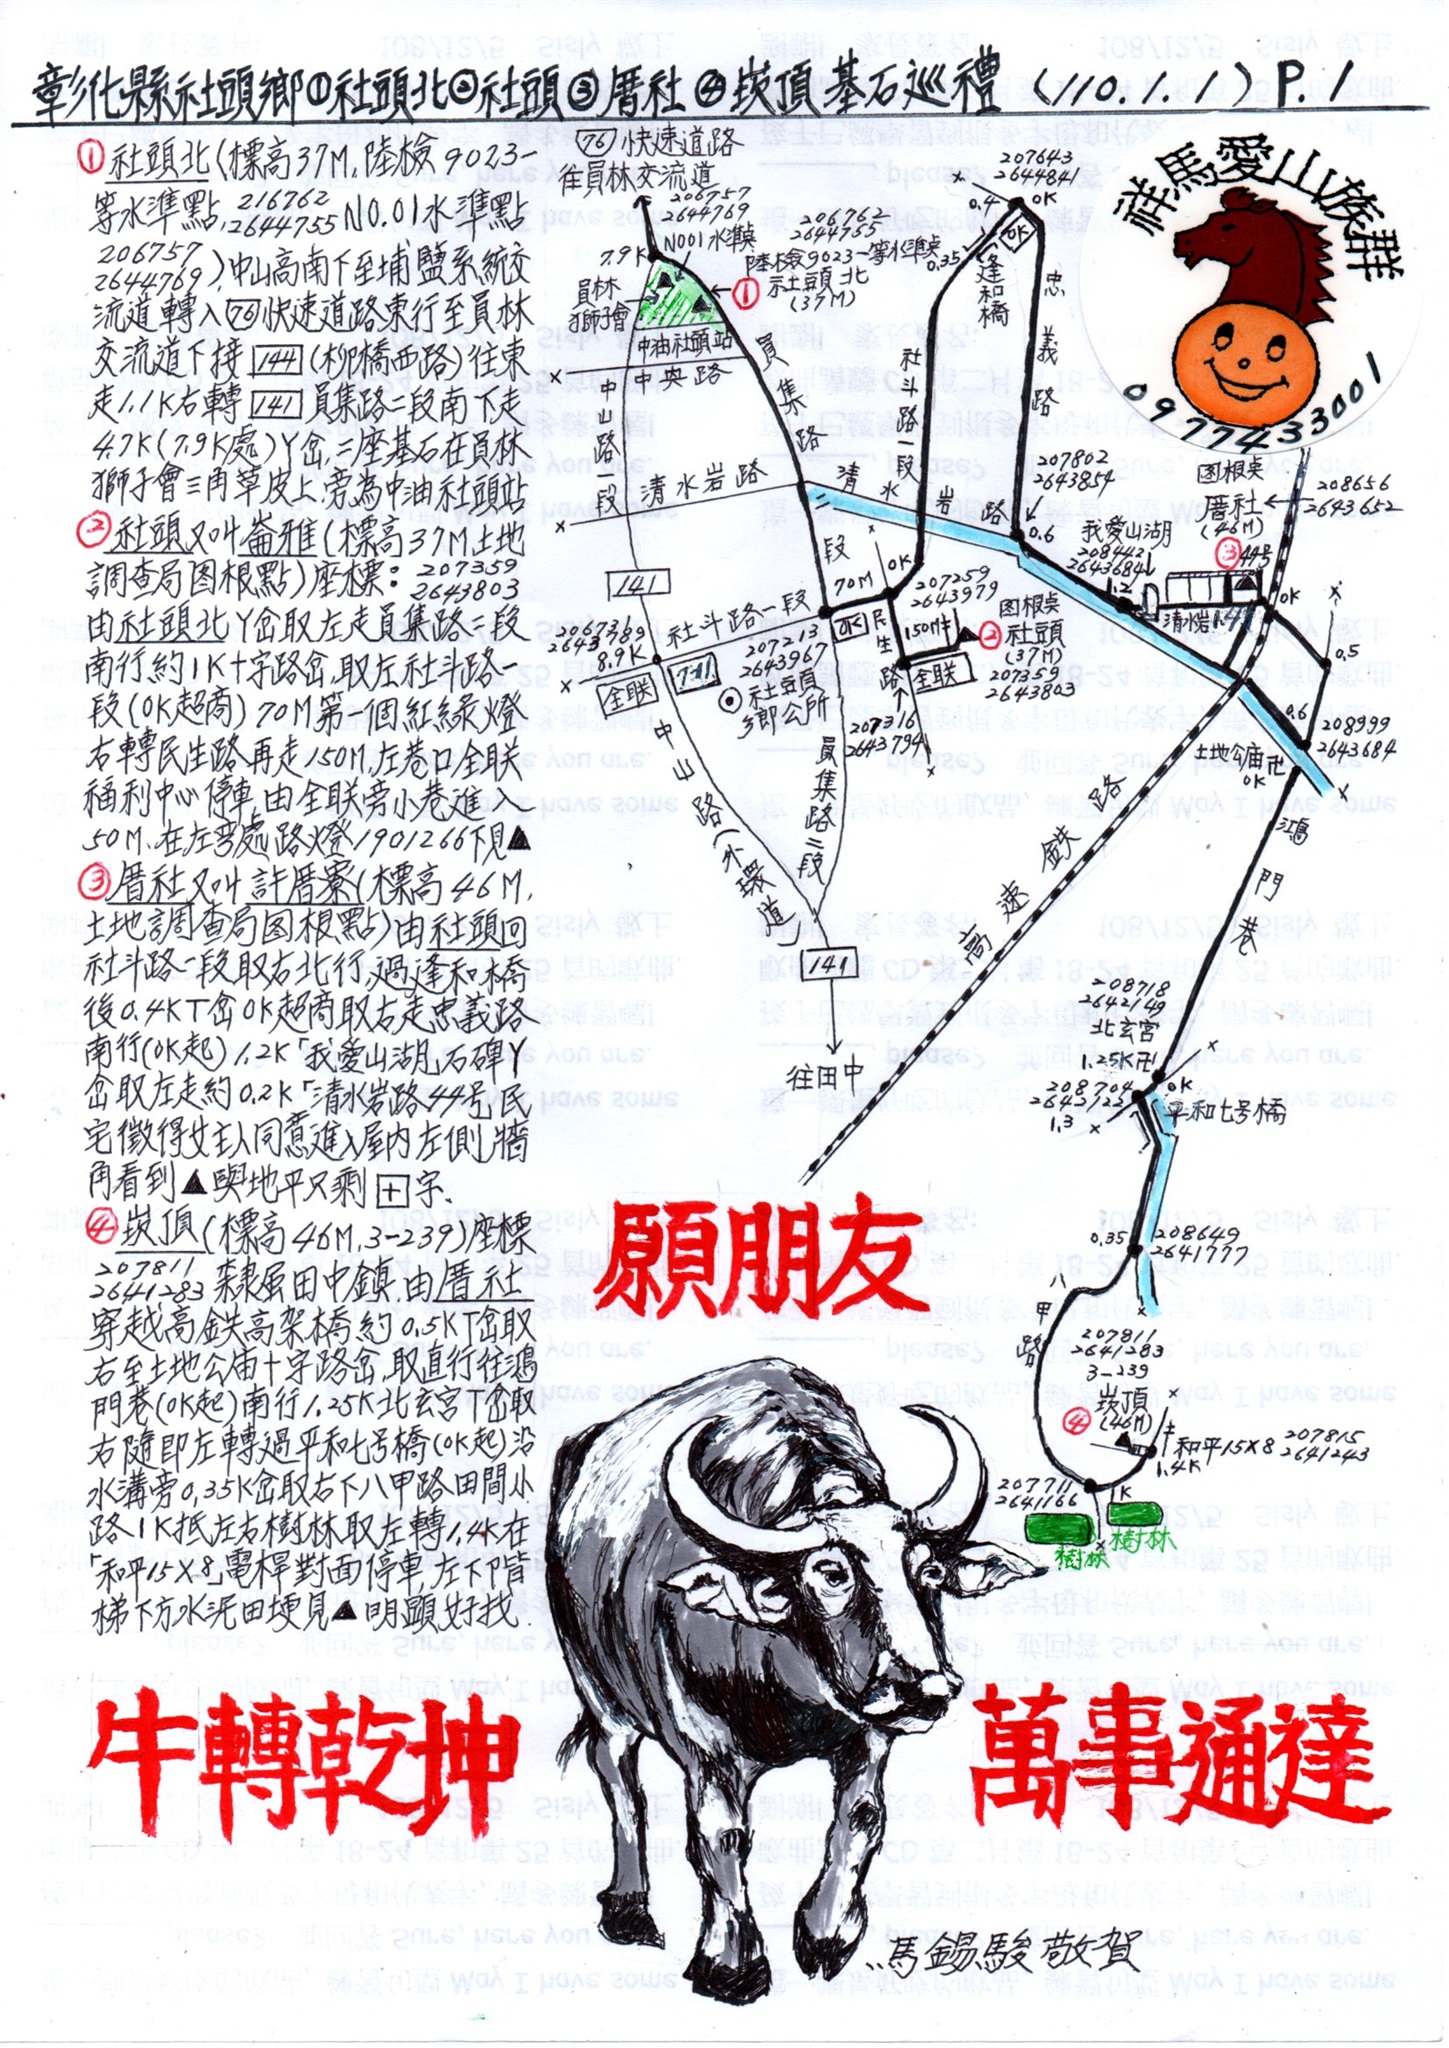 彰化縣社頭鄉①社頭北②社頭③厝社④崁頂基石巡禮（110.1.1）P.1
①社頭北(標高37M,陸檢9023一
等水準點,216762
2644755 NO.01水準點
206757
2644769),中山高南下至埔鹽系統交
流道轉入76快速道路東行至員林
交流道下接144(柳橋西路)往東
走1.1K右轉141員集路二段南下走
4.7K(7.9K處)Y岔,二座基石在員林
獅子會三角草皮上,旁為中油社頭站
②社頭又叫崙雅(標高37M土地
調查局图根點)座標:207359
2643803
由社頭北Y岔取左走員集路二段
南行約1K十字路岔,取左社斗路一
段(OK超商)70M第一個紅綠燈
右轉民生路再走150M,左巷口全联
福利中心停車,由全联旁小巷進
50M.在左弯處路燈1901266下見▲
③厝社又叫許厝寮(標高46M,
土地調查局图根點)由社頭回
社斗路一段取右北行,過逢和橋
後0.4KT岔OK超商取右走忠義路
南行(OK起)1.2K「我愛山湖」石碑Y
岔取左走約0.2K「清水岩路44号」民
宅徵得女主人同意進入屋内左側牆
角看到▲與地平只剩田字.
④崁頂(標高46M,3-239)座標
207811
2641283隸屬田中鎮,由厝社
穿越高鉄高架橋約0.5KT岔取
右至土地公庙十字路岔,取直行往鴻
門巷(OK起)南行1.25K北玄宮T岔取
右隨即左轉過平和七号橋(OK起)沿
水溝旁0.35K岔取右下八甲路田間小
路1K抵左右樹林取左轉1.4K在
「和平15X8」電桿對面停車,左下階
梯下方水泥田埂見▲明顯好找.
76快速道路
往員林交流道
206757
2644769
N001水準點
7.9K
206762
2644755
陸檢9023一等水準點
①社頭北
(37M)
員林
獅子會
中油社頭站
中央路
中山路一段
員集路
清水岩路
社斗路一段
207643
2644841
0.4
OK
OK
0.35
逢和橋
忠義路
祥馬愛山族群
0977433001
207802
2643854
0.6
清水岩路
图根點
厝社
(46M)
208656
2643652
③44号
我愛山湖
208442
2643684
1.2
OK
0.5
141
段
70M
OK
207259
2643979
OK
民生路
150M
图根點
②社頭
(37M)
207359
2643803
全联
207316
2643794
206737
2643789
8.9K
社斗路一段
207213
2643967
7-11
全联
社頭
鄉公所
中山路(外環道)
員集路二段
141
往田中
高速鉄路
0.6
208999
2643684
土地公庙卍
OK
鴻門巷
208718
2642149
北玄宮
1.25K卍
OK
208704
1.3
平和七号橋
0.35
208649
2641777
八甲路
207811
2641283
3-239
崁頂
(46M)
④
和平15X8
207815
2641243
1.4K
207711
2641166
1K
樹林
樹林
願朋友
牛轉乾坤
萬事通達
馬錫駿敬賀